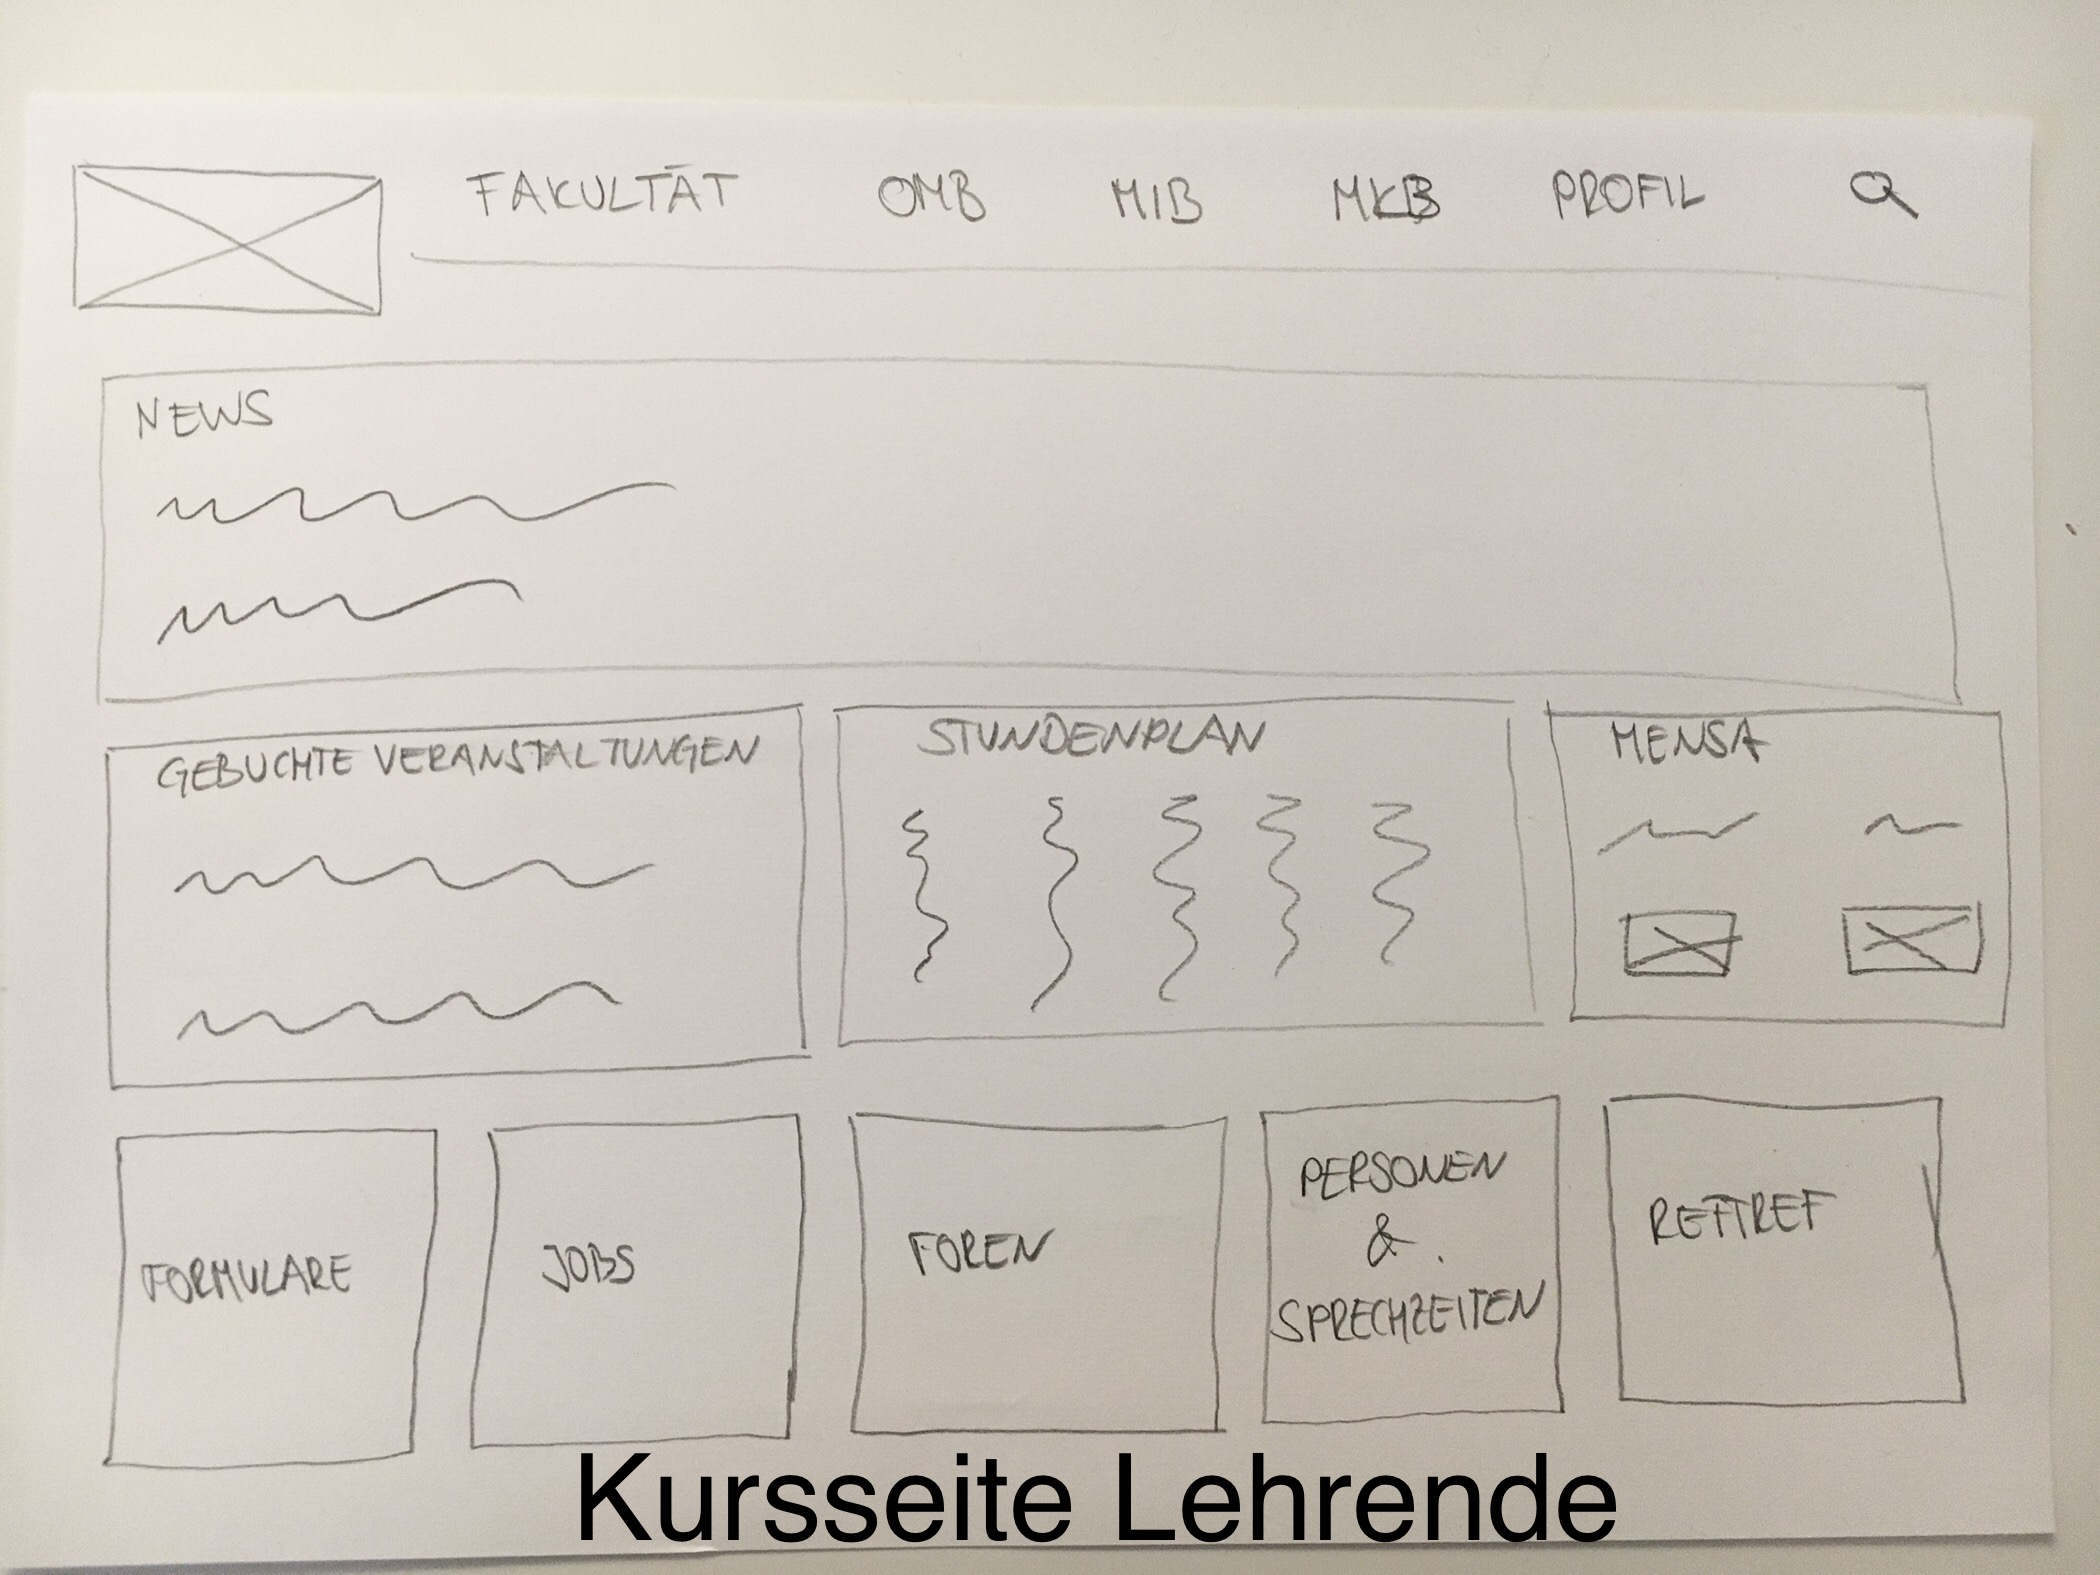 FAKULTÄT OMB MIB MKB PROFIL
NEWS
GEBUCHTE VERANSTALTUNGEN
STUNDENPLAN
MENSA
FORMULARE
JOBS
FOREN
PERSONEN
&
SPRECHZEITEN
REFTREF
Kursseite Lehrende